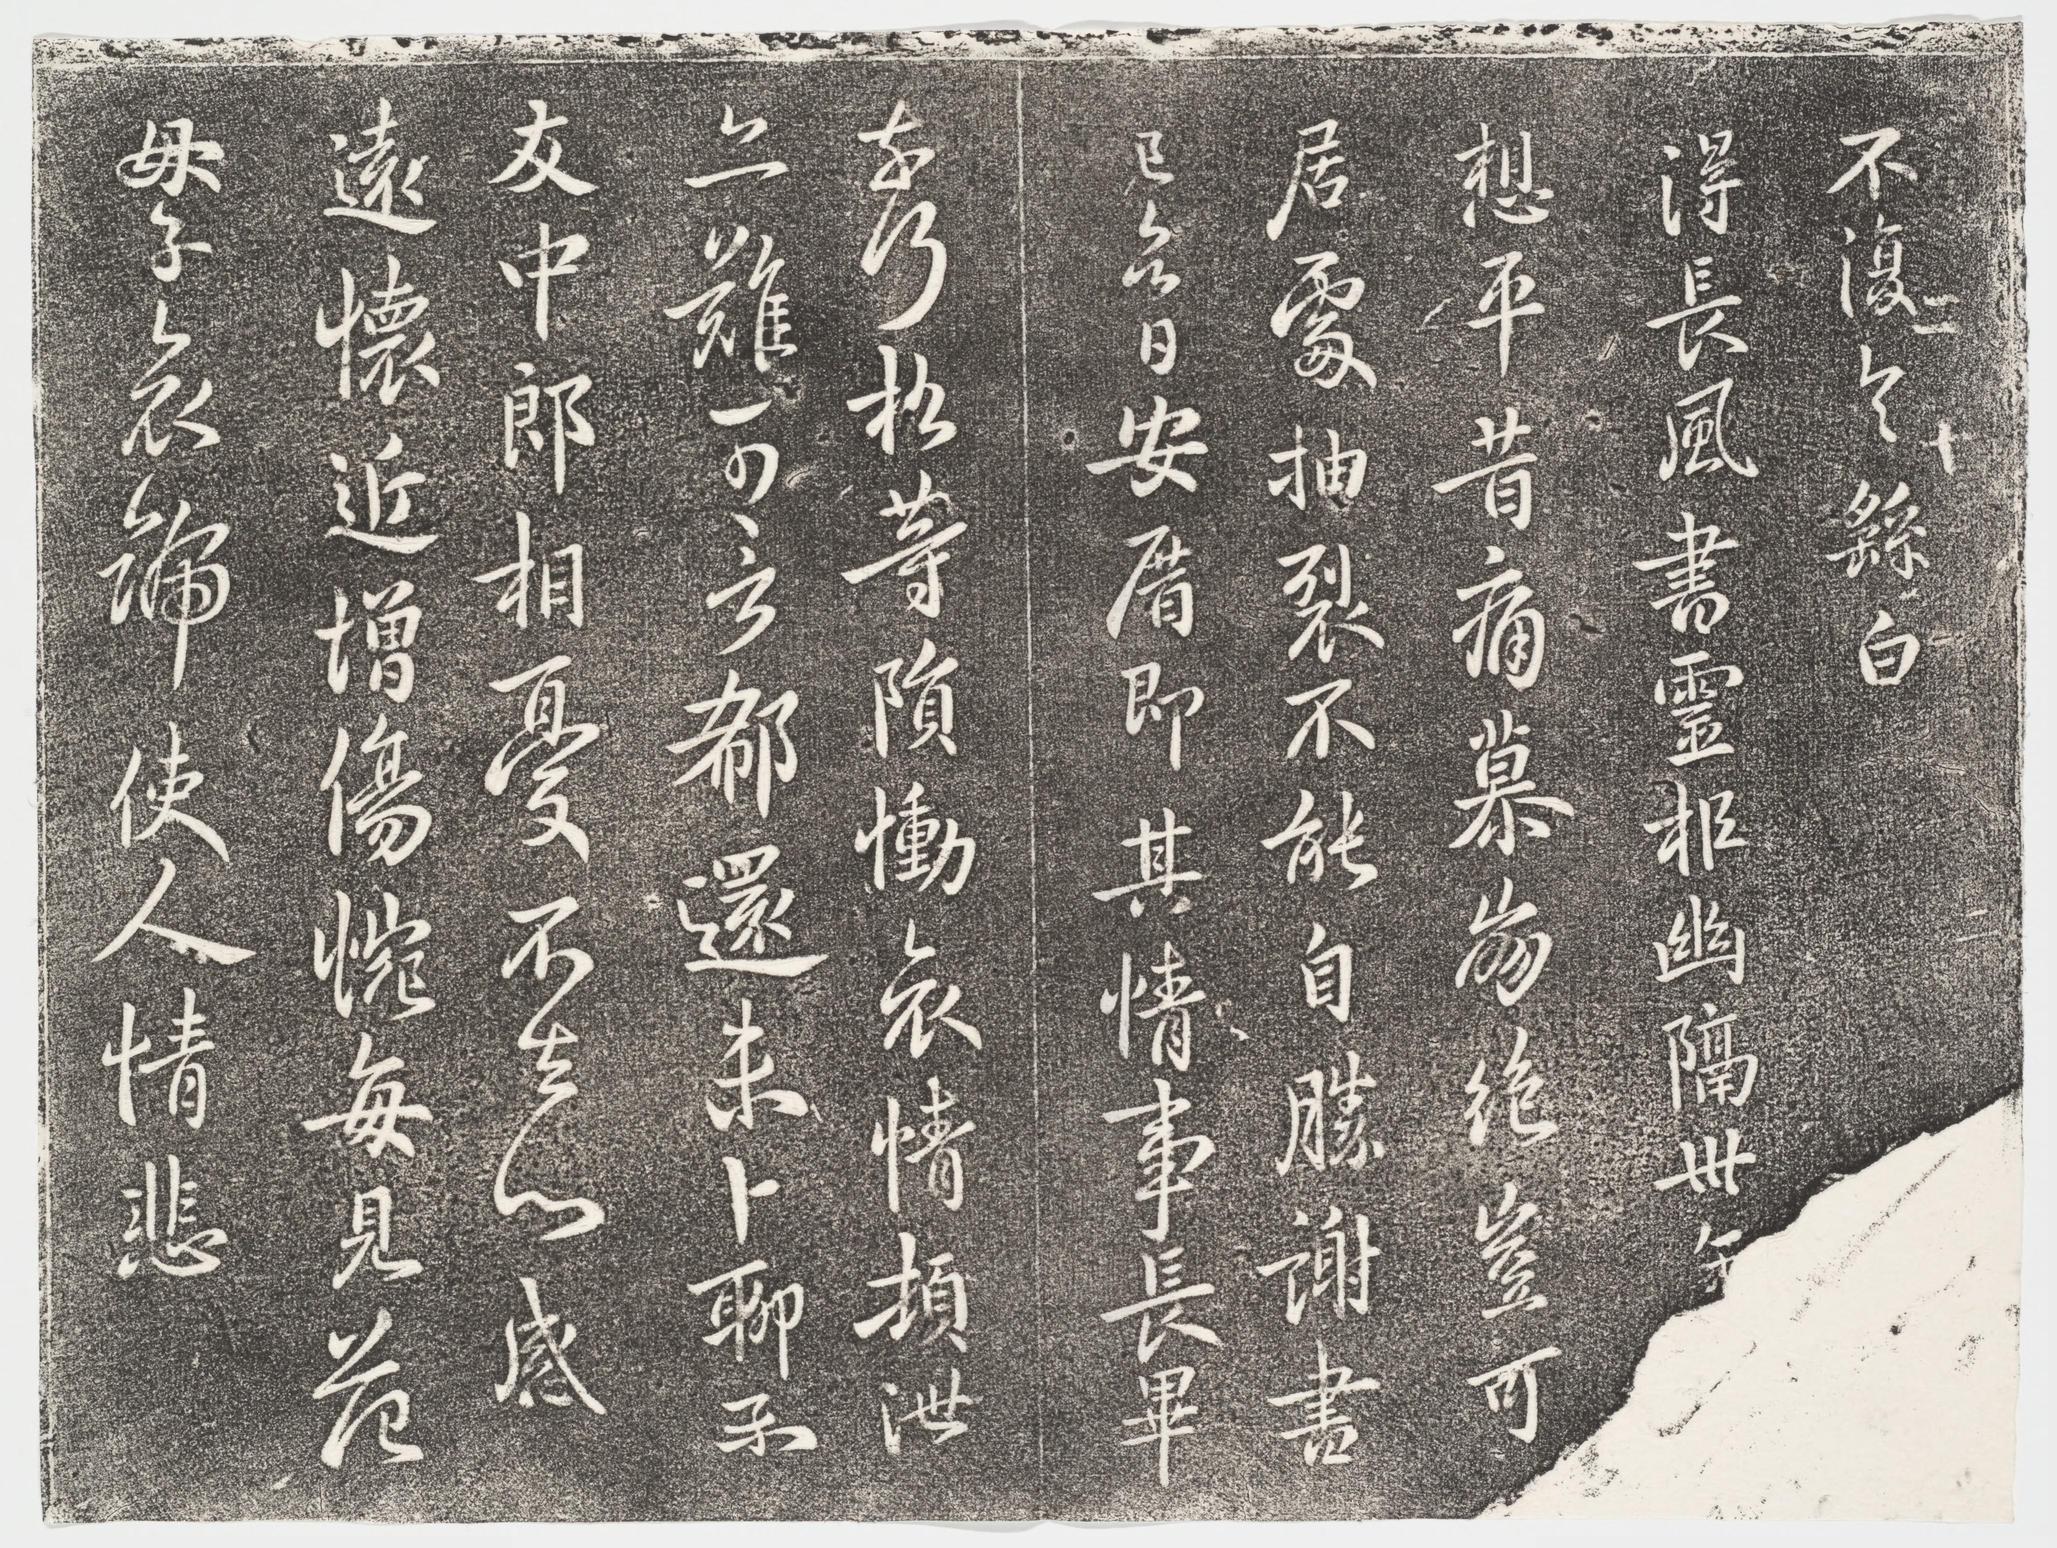 二十
不復 繇白
得長風書靈柩幽隔卅年
想平昔痛慕崩絕豈可
居處抽裂不能自勝謝
已 日安厝即其情事長畢
奈何松等隕慟哀情頓泄
亦難可言都還未卜聊示
友中郎相憂不去心感
遠懷近增傷惋每見范
母子哀號使人情悲